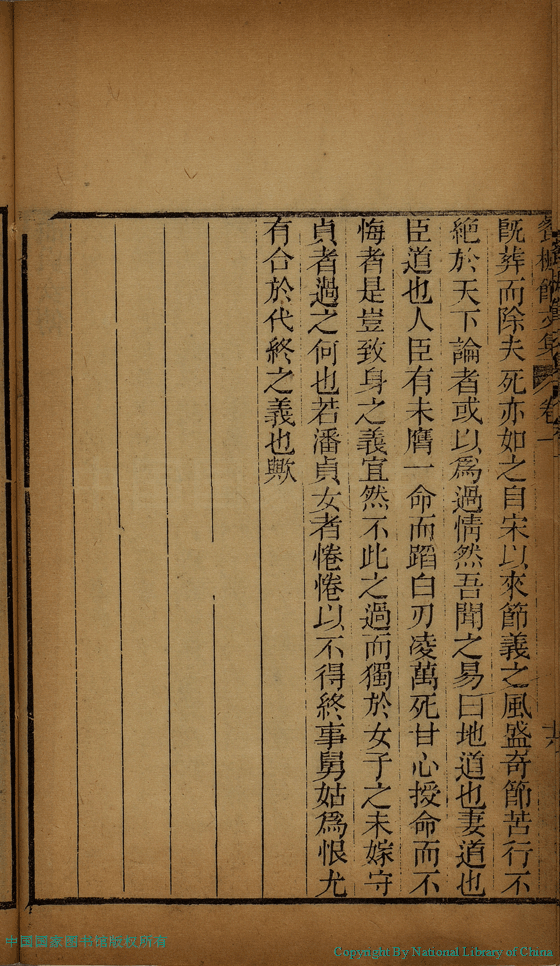 既葬而除夫死亦如之自宋以來節義之風盛奇節苦行不
絶於天下論者或以爲過情然吾聞之易曰地道也妻道也
臣道也人臣有未膺一命而蹈白刃凌萬死甘心授命而不
悔者是豈致身之義宜然不此之過而獨於女子之未嫁守
貞者過之何也若潘貞女者惓惓以不得終事舅姑爲恨尤
有合於代終之義也歟
中国国家图书馆版权所有
Copyright By National Library of China